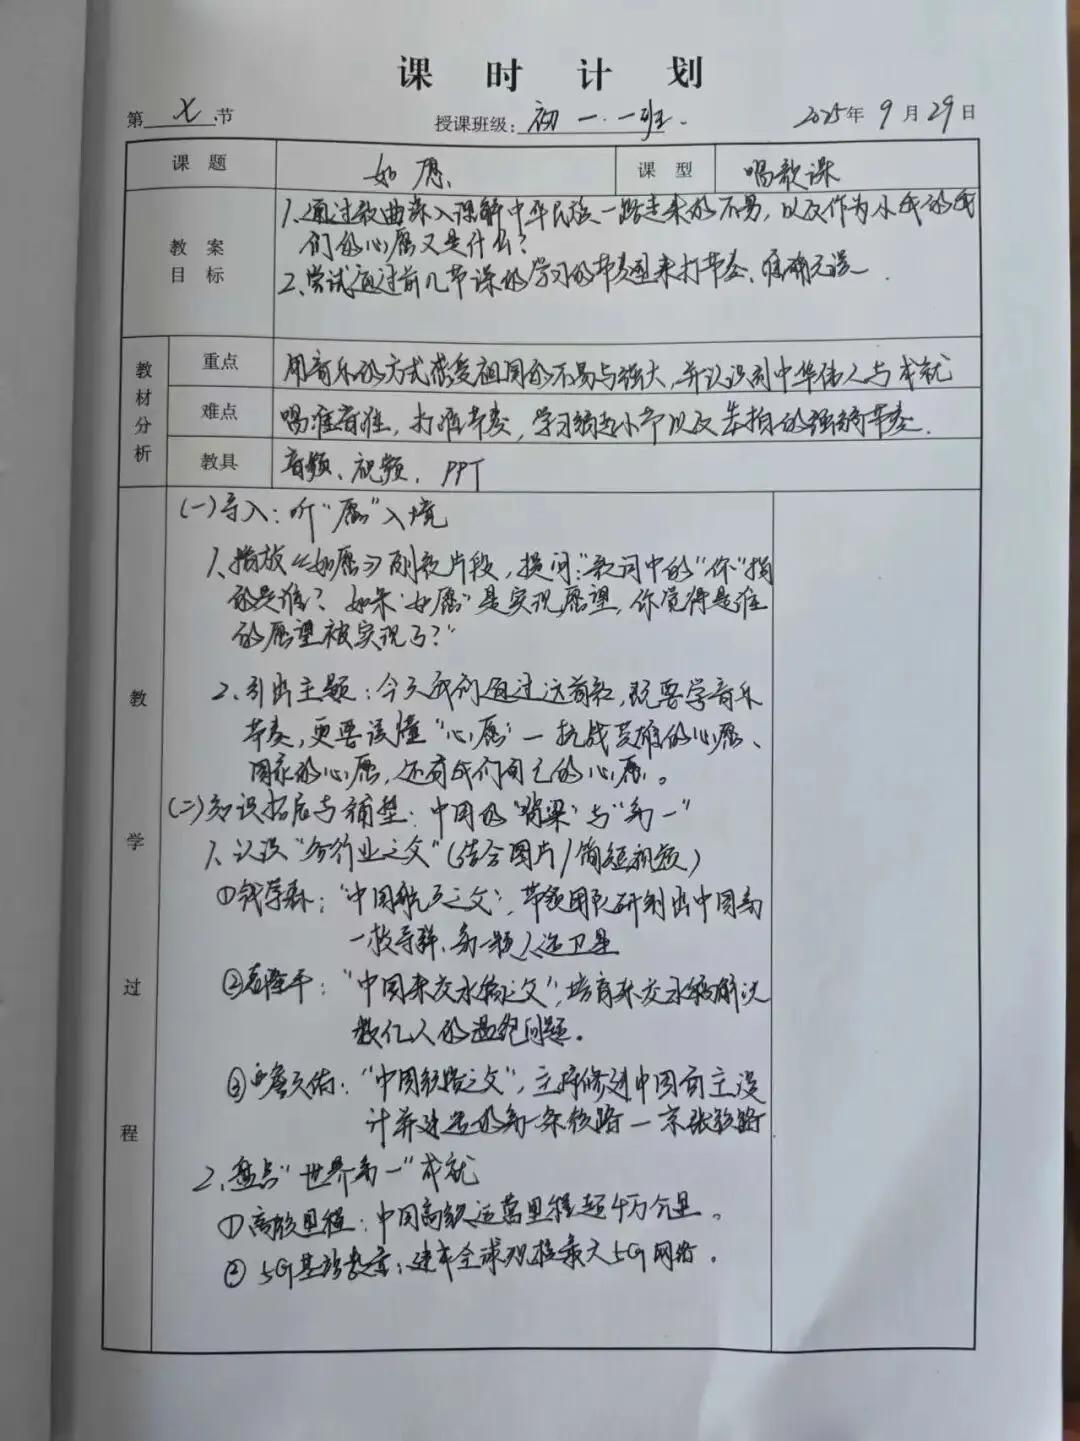 课 时 计 划
第 七 节 授课班级: 初一.一班. 2025年9月29日
课 题 如愿、 课 型 唱歌课
教 案 目 标
1、通过歌曲深入理解中华民族一路走来的不易,以及作为小我的我
们的心愿又是什么?
2、尝试通过前几节课的学习的节奏型来打节奏、准确无误.
教材分析
重点 用音乐的方式感受祖国的不易与强大,并认识到中华伟人与成就
难点 唱准音准,打准节奏,学习弱起小节以及各拍的强弱节奏.
教具 音频、视频、PPT
教 学 过 程
(一)导入:听“愿”入境
1、播放《如愿》副歌片段,提问:“歌词中的“你”指
的是谁?如果‘如愿’是实现愿望,你觉得是谁
的愿望被实现了?”
2、引出主题:今天我们通过这首歌,既要学音乐
节奏,更要读懂“心愿”—抗战英雄的心愿、
国家的心愿,还有我们自己的心愿。
(二)知识拓展与铺垫:中国的‘脊梁’与“第一”
1、认识“各行业之父”(结合图片/简短视频)
①钱学森:“中国航天之父”,带领团队研制出中国第
一枚导弹、第一颗人造卫星
②袁隆平:“中国杂交水稻之父”,培育杂交水稻解决
数亿人的温饱问题。
③詹天佑:“中国铁路之父”,主持修建中国自主设
计并建造的第一条铁路—京张铁路
2、盘点“世界第一”成就
①高铁里程:中国高铁运营里程超4万公里。
②5G基站数量:建成全球规模最大5G网络.